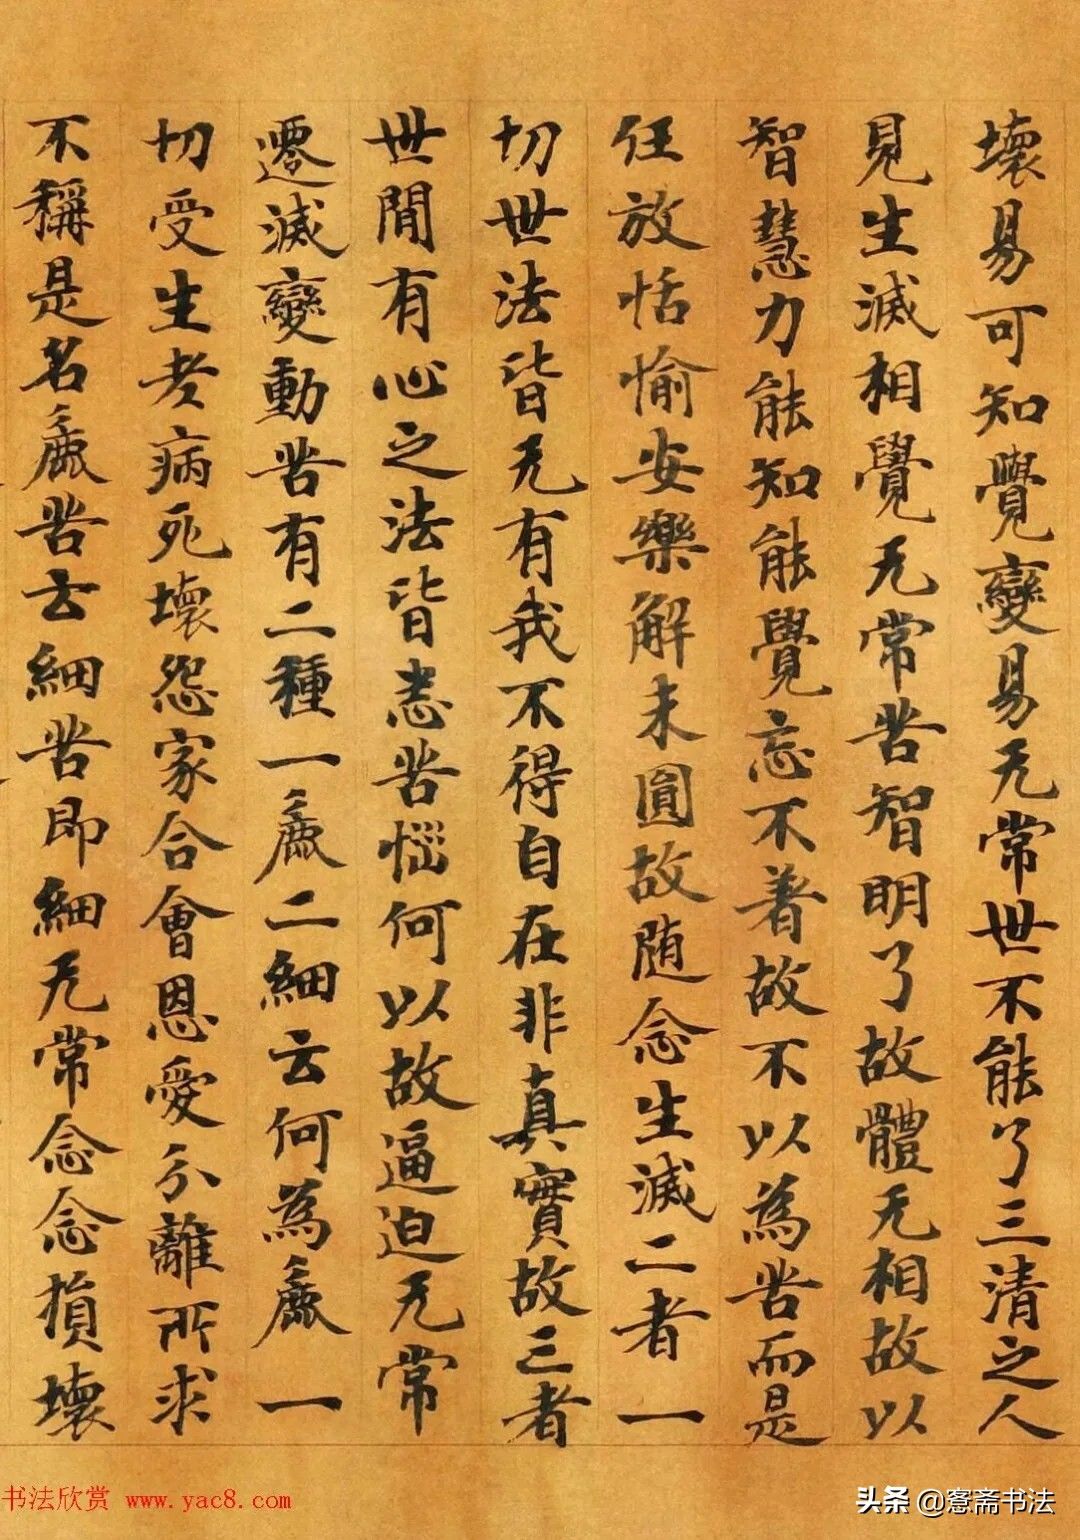 壞易可知覺變易无常世不能了三清之人
見生滅相覺无常苦智明了故體无相故以
智慧力能知能覺忘不著故不以為苦而是
任放恬愉安樂解未圓故随念生滅二者一
切世法皆无有我不得自在非真實故三者
世間有心之法皆悉苦惱何以故逼迫无常
遷滅變動苦有二種一麁二細云何為麁一
切受生老病死壞怨家合會恩愛分離所求
不稱是名麁苦云細苦即細无常念念損壞
书法欣赏 www.yac8.com
头条 @窓斋书法